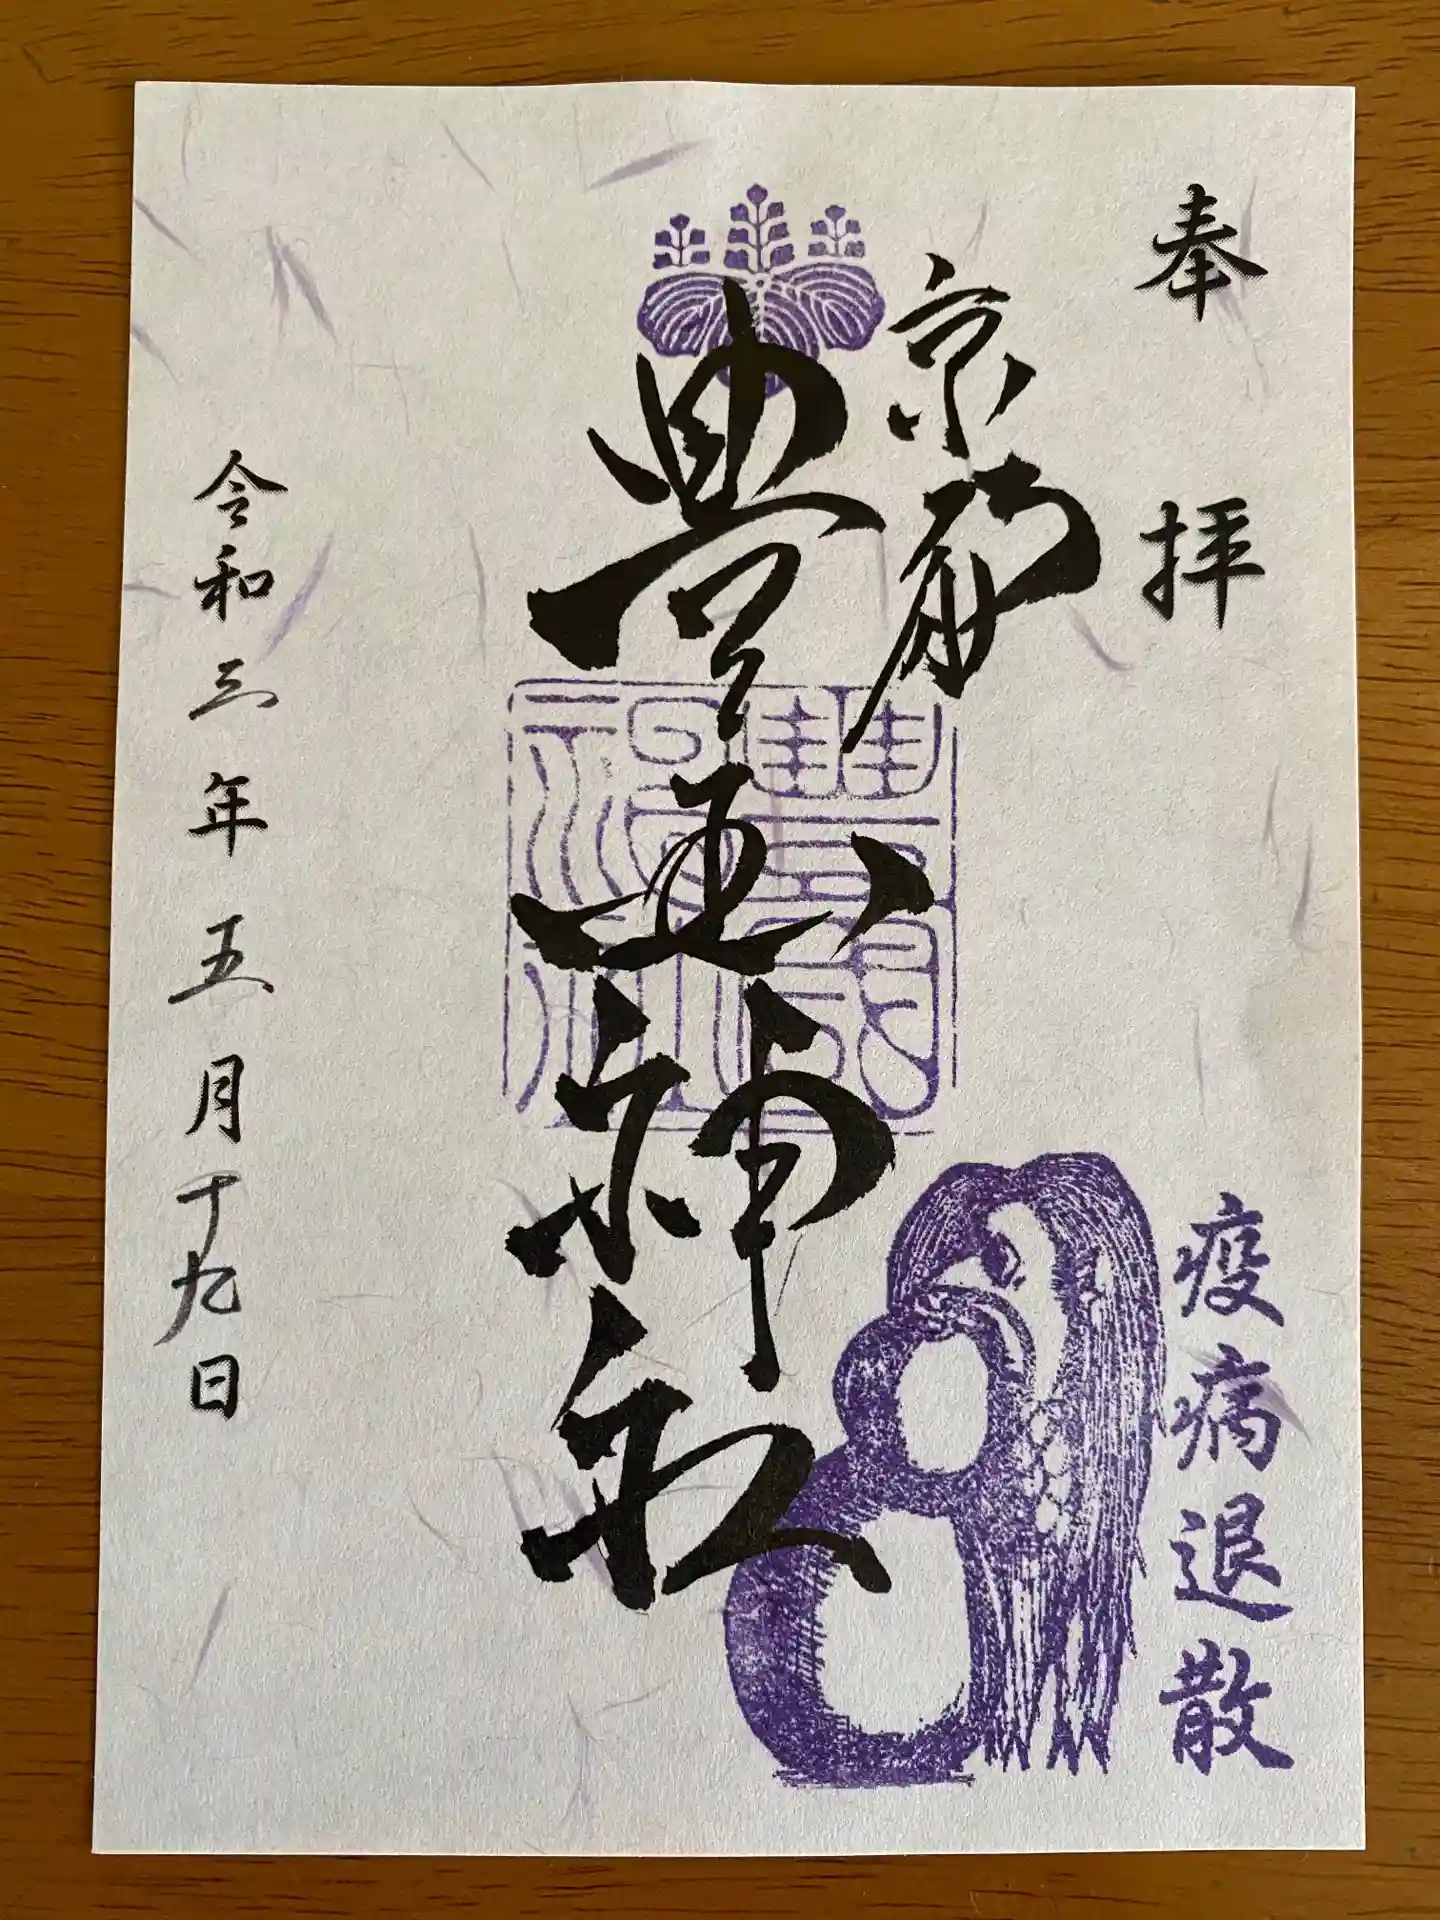 奉拝
疫病退散
京都
豊国神社
令和三年五月十九日